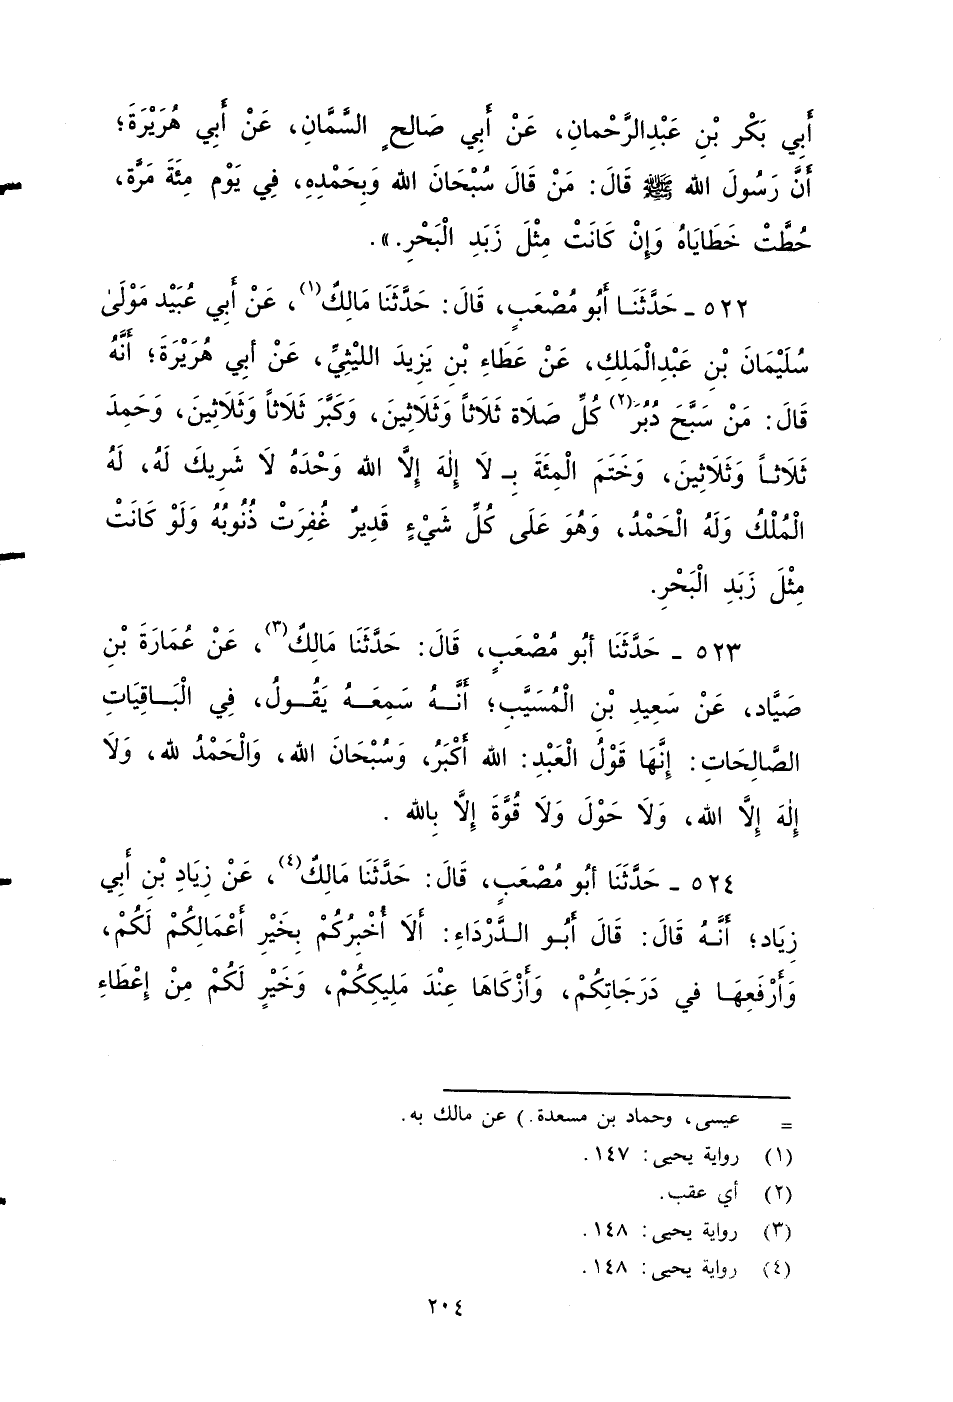 أَبِي بَكْرِ بْنِ عَبْدِالرَّحْمانِ، عَنْ أَبِي صَالِحٍ السَّمَّانِ، عَنْ أَبِي هُرَيْرَةَ؛
أَنَّ رَسُولَ اللهِ ﷺ قَالَ: مَنْ قَالَ سُبْحَانَ اللهِ وَبِحَمْدِهِ، فِي يَوْمٍ مِئَةَ مَرَّةٍ،
حُطَّتْ خَطَايَاهُ وَإِنْ كَانَتْ مِثْلَ زَبَدِ الْبَحْرِ.».
٥٢٢ ـ حَدَّثَنَا أَبُو مُصْعَبٍ، قَالَ: حَدَّثَنَا مَالِكٌ(١)، عَنْ أَبِي عُبَيْدٍ مَوْلَىٰ
سُلَيْمَانَ بْنِ عَبْدِالْمَلِكِ، عَنْ عَطَاءِ بْنِ يَزِيدَ الليْثِيِّ، عَنْ أبي هُرَيْرَةَ؛ أَنَّهُ
قَالَ: مَنْ سَبَّحَ دُبُرَ(٢) كُلِّ صَلَاةٍ ثَلَاثاً وَثَلَاثِينَ، وَكَبَّرَ ثَلَاثاً وَثَلَاثِينَ، وَحَمِدَ
ثَلَاثـاً وَثَلَاثِينَ، وَخَتَمَ الْمِئَةَ بِـ لَا إِلٰهَ إِلَّا اللهُ وَحْدَهُ لَا شَرِيكَ لَهُ، لَهُ
الْمُلْكُ وَلَهُ الْحَمْدُ، وَهُوَ عَلَى كُلِّ شَيْءٍ قَدِيرٌ غُفِرَتْ ذُنُوبُهُ وَلَوْ كَانَتْ
مِثْلَ زَبَدِ الْبَحْرِ.
٥٢٣ ـ حَدَّثَنَا أبُو مُصْعَبٍ، قَالَ: حَدَّثَنَا مَالِكٌ(٣)، عَنْ عُمَارَةَ بْنِ
صَيَّادٍ، عَنْ سَعِيدِ بْنِ الْمُسَيَّبِ؛ أَنَّـهُ سَمِعَـهُ يَقُـولُ، فِي الْبَـاقِيَاتِ
الصَّالِحَاتِ: إِنَّهَا قَوْلُ الْعَبْدِ: اللهُ أَكْبَرُ، وَسُبْحَانَ اللهِ، وَالْحَمْدُ للهِ، وَلَا
إِلٰهَ إِلَّا اللهُ، وَلَا حَوْلَ وَلَا قُوَّةَ إِلَّا بِاللهِ .
٥٢٤ ـ حَدَّثَنَا أبُو مُصْعَبٍ، قَالَ: حَدَّثَنَا مَالِكٌ(٤)، عَنْ زِيَادِ بْنِ أَبِي
زِيَادٍ؛ أَنَّـهُ قَالَ: قَالَ أَبُـو الـدَّرْدَاءِ: أَلَا أُخْبِرُكُمْ بِخَيْرِ أَعْمَالِكُمْ لَكُمْ،
وَأَرْفَعِهَـا في دَرَجَاتِكُمْ، وَأَزْكَاهَا عِنْدَ مَلِيكِكُمْ، وَخَيْرٍ لَكُمْ مِنْ إِعْطَاءِ
= عيسى، وحماد بن مسعدة.) عن مالك به.
(١) رواية يحيى: ١٤٧.
(٢) أي عقب.
(٣) رواية يحيى: ١٤٨.
(٤) رواية يحيى: ١٤٨.
٢٠٤